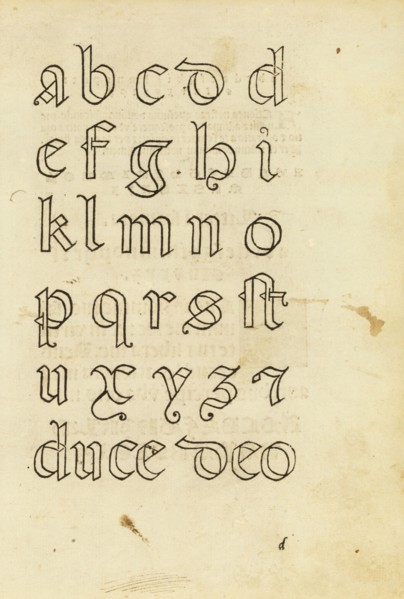 a b c d d
e f g h i
k l m n o
p q r s ſt
u x y z ⁊
duce deo
d